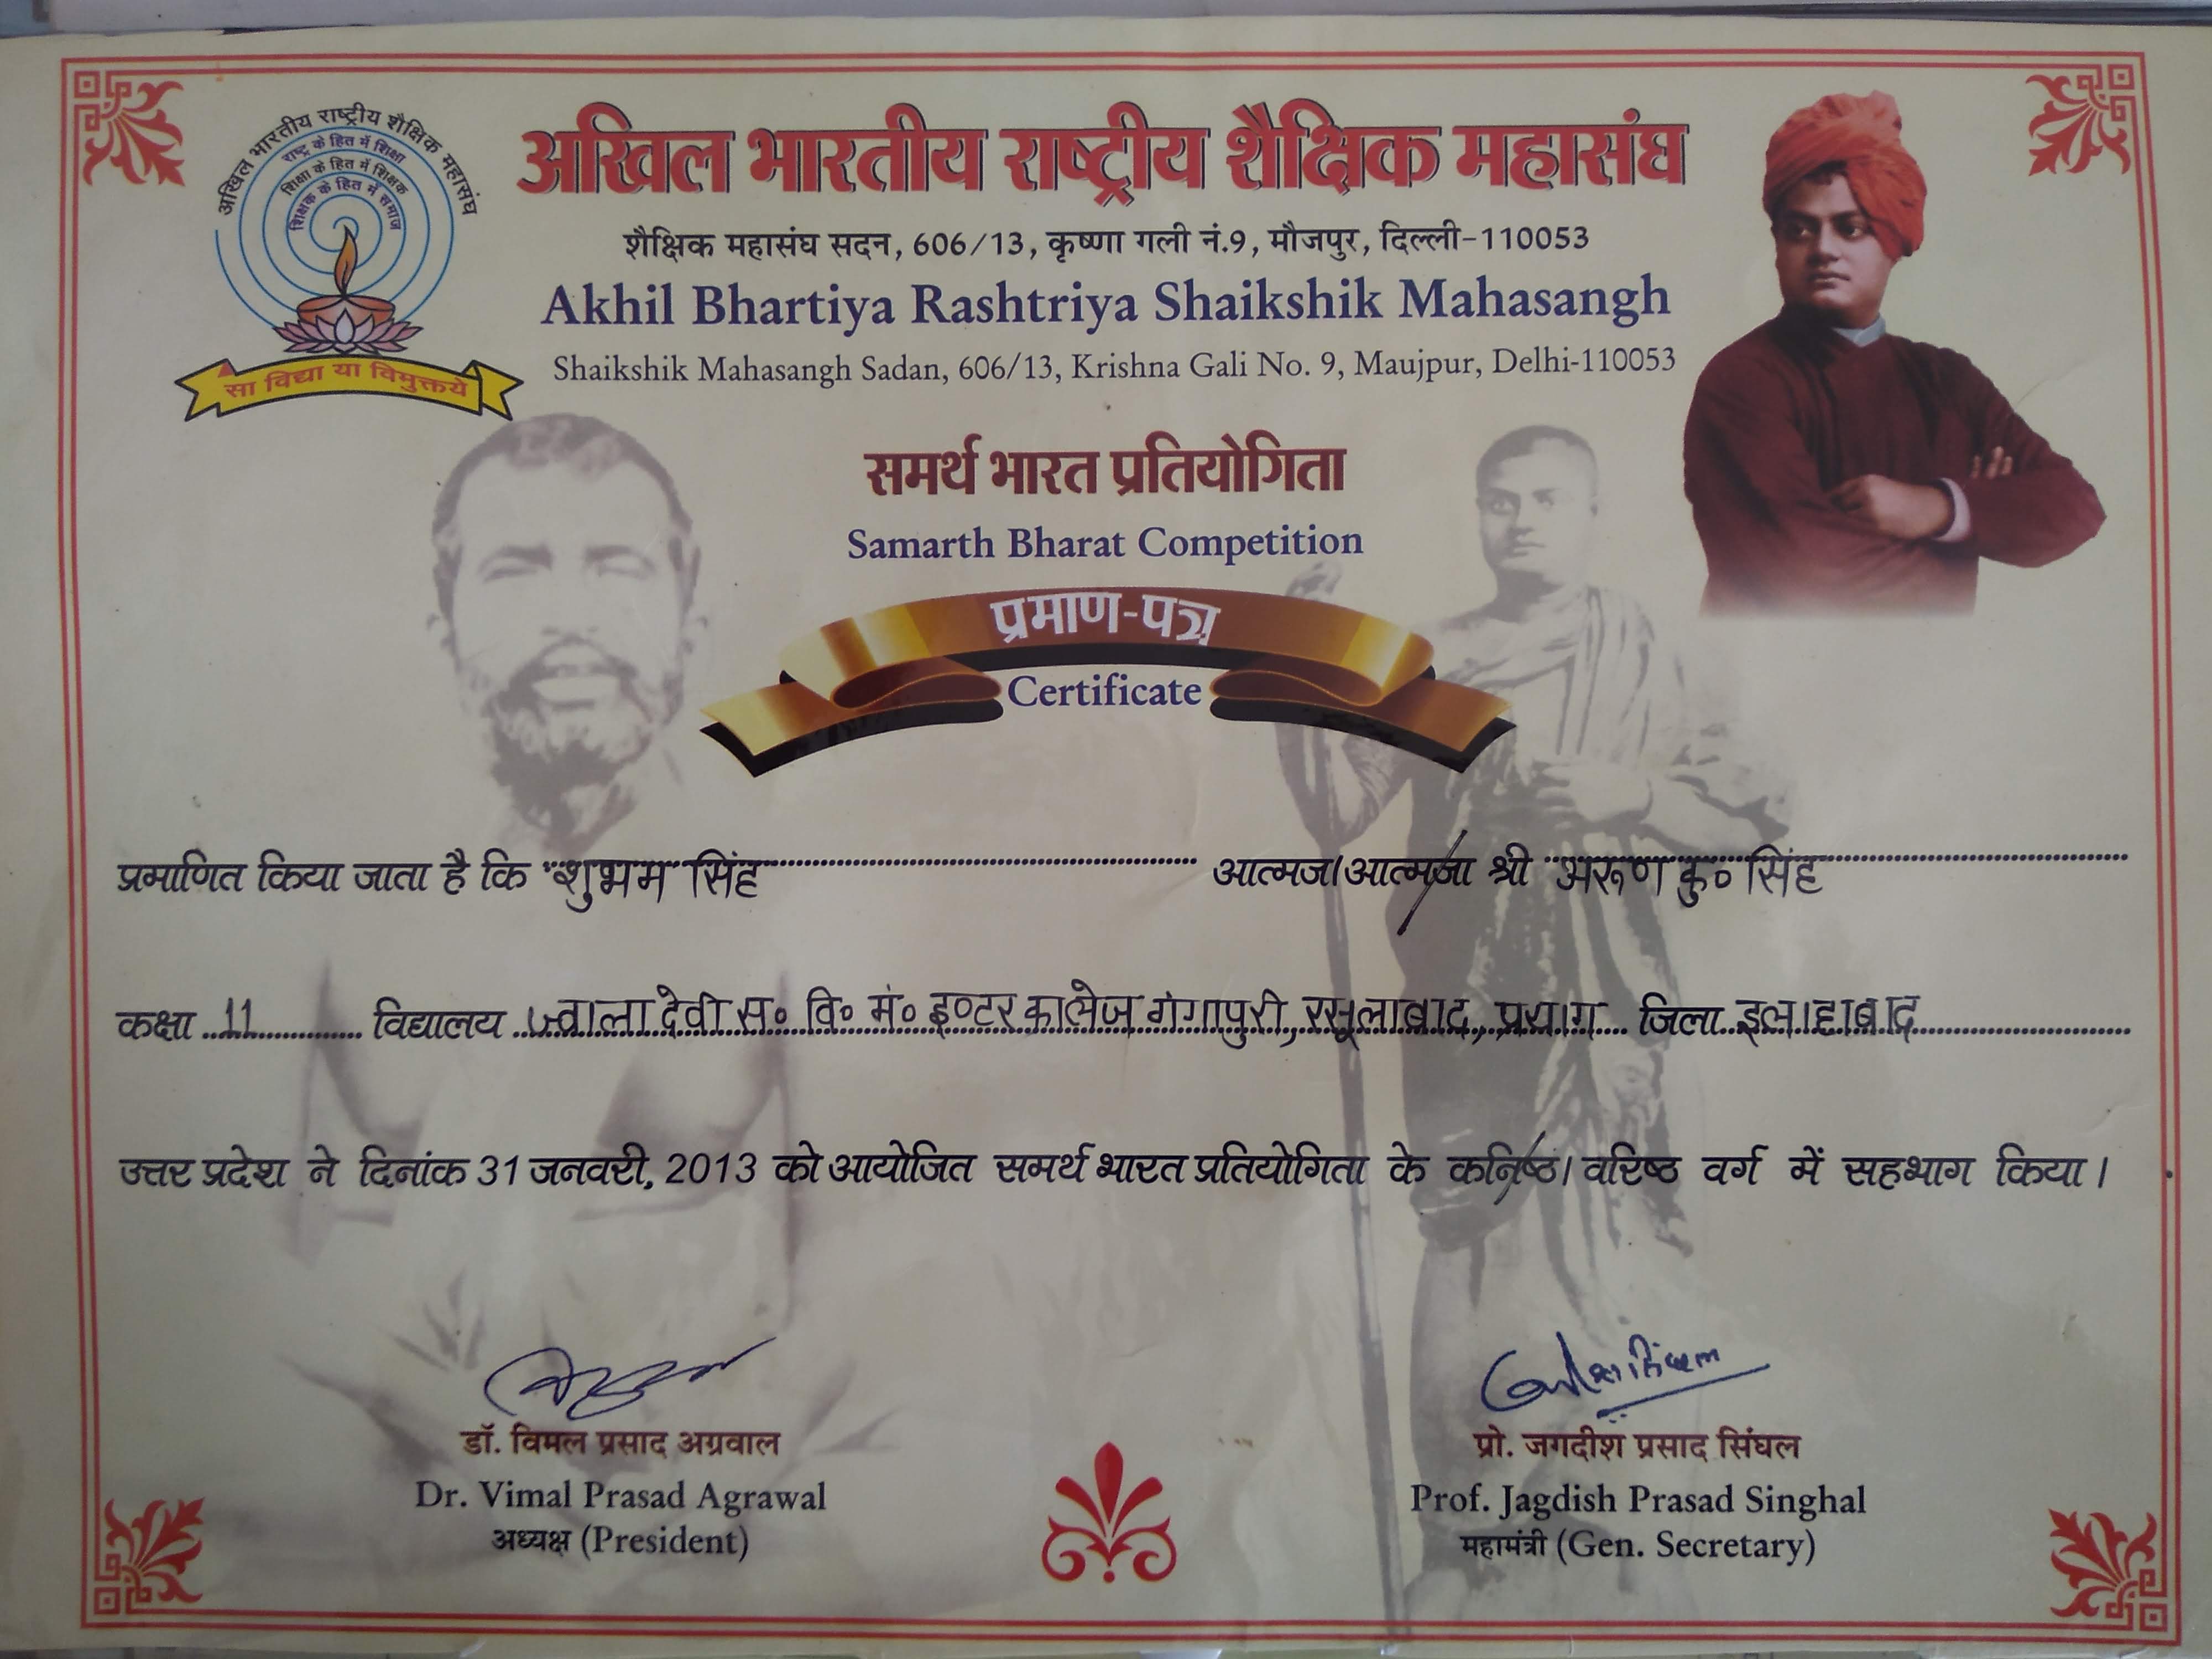 अखिल भारतीय राष्ट्रीय शैक्षिक महासंघ
राष्ट्र के हित में शिक्षा
शिक्षा के हित में शिक्षक
शिक्षक के हित में समाज
सा विद्या या विमुक्तये
अखिल भारतीय राष्ट्रीय शैक्षिक महासंघ
शैक्षिक महासंघ सदन, 606/13, कृष्णा गली नं.9, मौजपुर, दिल्ली-110053
Akhil Bhartiya Rashtriya Shaikshik Mahasangh
Shaikshik Mahasangh Sadan, 606/13, Krishna Gali No. 9, Maujpur, Delhi-110053
समर्थ भारत प्रतियोगिता
Samarth Bharat Competition
प्रमाण-पत्र
Certificate
प्रमाणित किया जाता है कि शुभम सिंह आत्मज/आत्मजा श्री अरूण कु० सिंह
कक्षा 11 विद्यालय ज्वाला देवी स० वि० मं० इण्टर कालेज गंगापुरी, रसूलाबाद, प्रयाग जिला इलाहाबाद
उत्तर प्रदेश ने दिनांक 31 जनवरी, 2013 को आयोजित समर्थ भारत प्रतियोगिता के कनिष्ठ/वरिष्ठ वर्ग में सहभाग किया।
डॉ. विमल प्रसाद अग्रवाल
Dr. Vimal Prasad Agrawal
अध्यक्ष (President)
प्रो. जगदीश प्रसाद सिंघल
Prof. Jagdish Prasad Singhal
महामंत्री (Gen. Secretary)